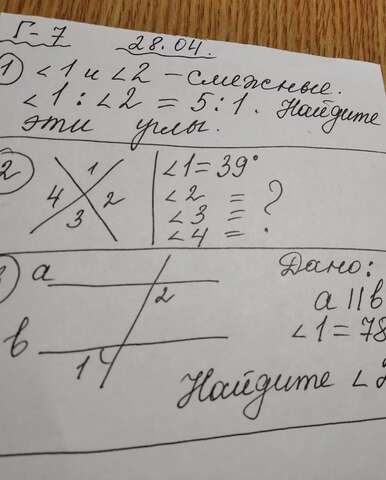 Г-7
28.04.
1 ∠1 и ∠2 – смежные.
∠1 : ∠2 = 5:1. Найдите
эти углы.
2
1
4 2
3
∠1 = 39°
∠2 = ?
∠3 =
∠4 =
a
2
b
1
Дано:
a || b
∠1 = 78
Найдите ∠